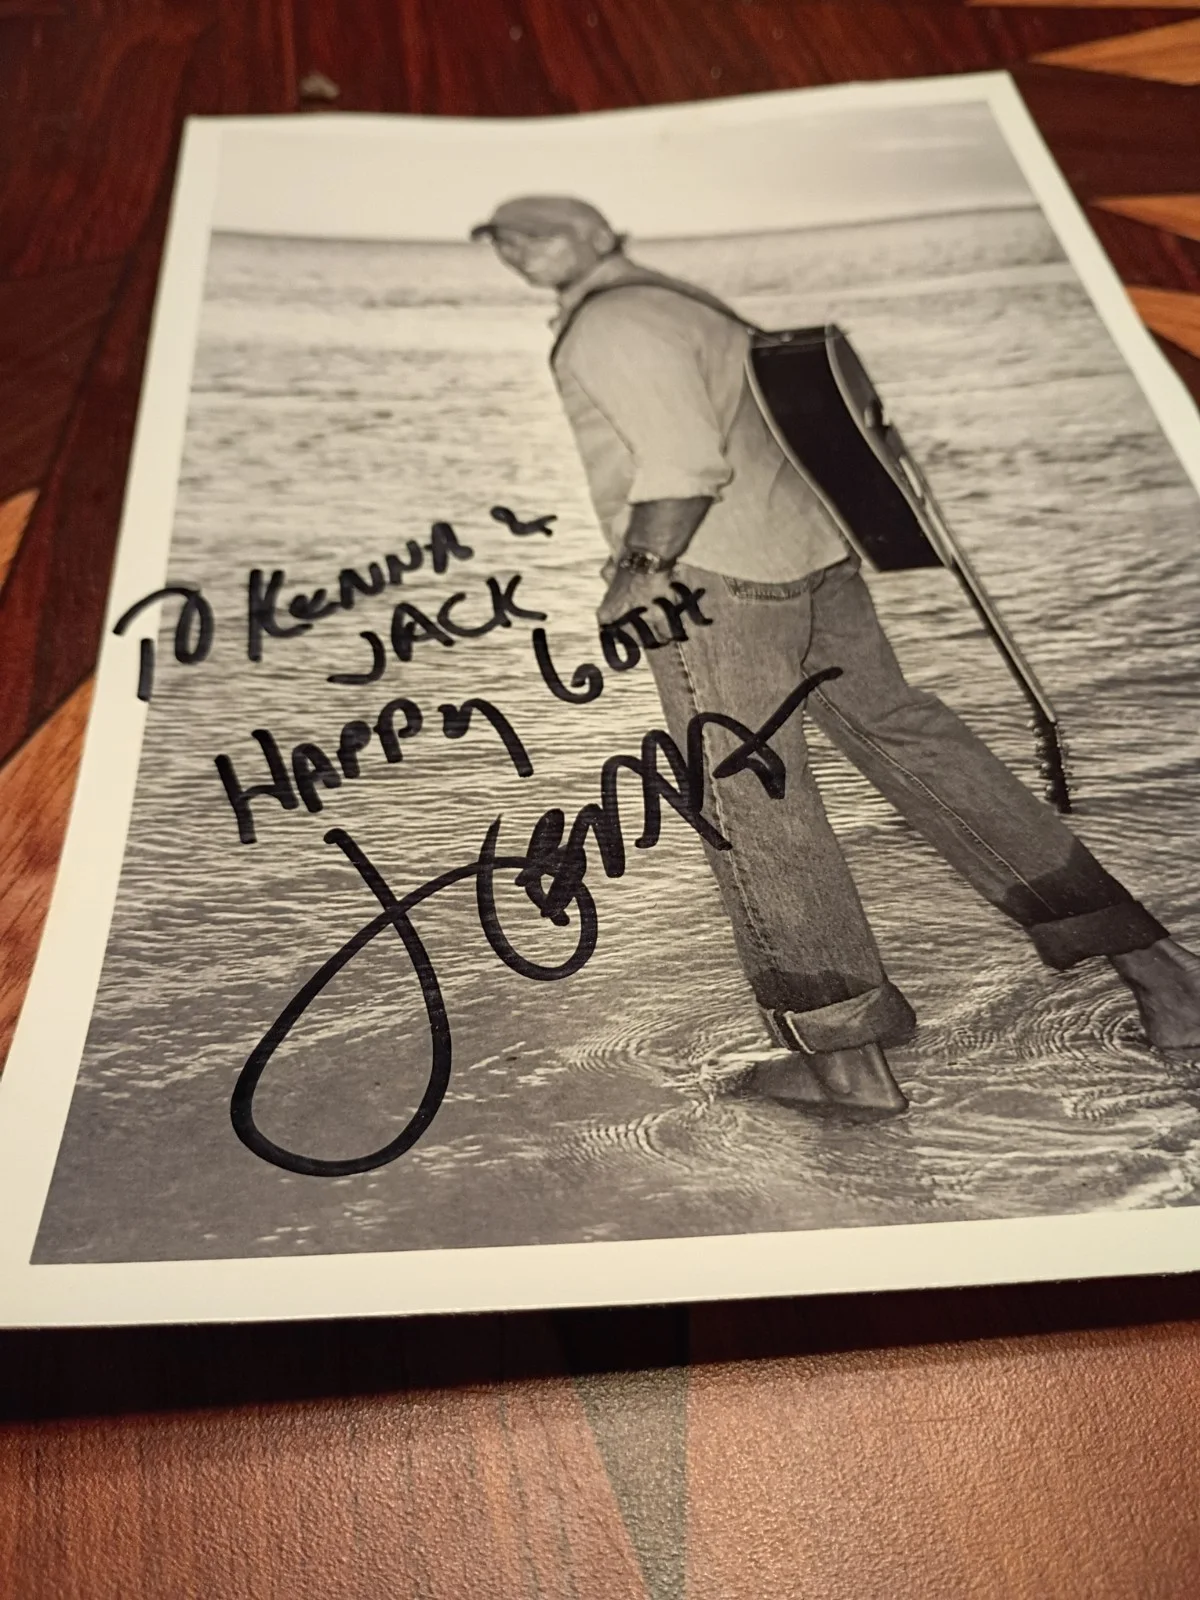 To Kenna &
JACK
HAPPY 60TH